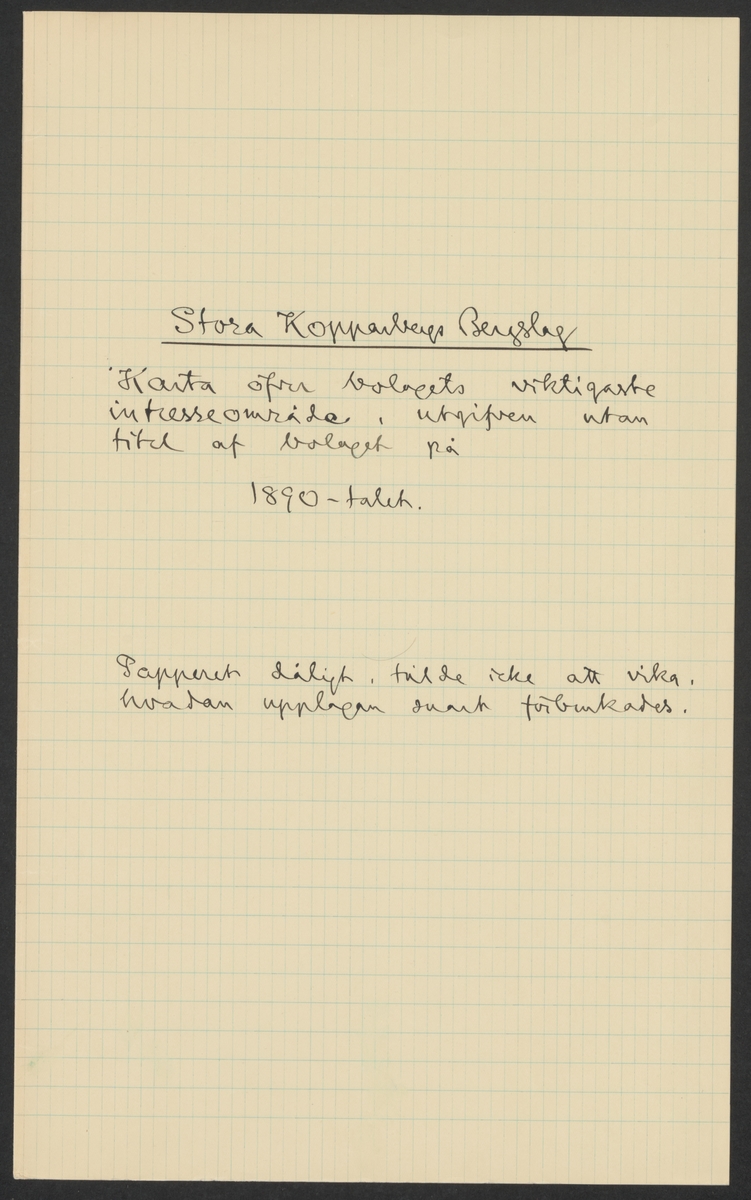 Stora Kopparbergs Bergslag
Karta öfver bolagets viktigaste
intresseområde, utgifven utan
titel af bolaget på
1890-talet.
Papperet dåligt, tålde icke att vika,
hvadan upplagan snart förbrukades.